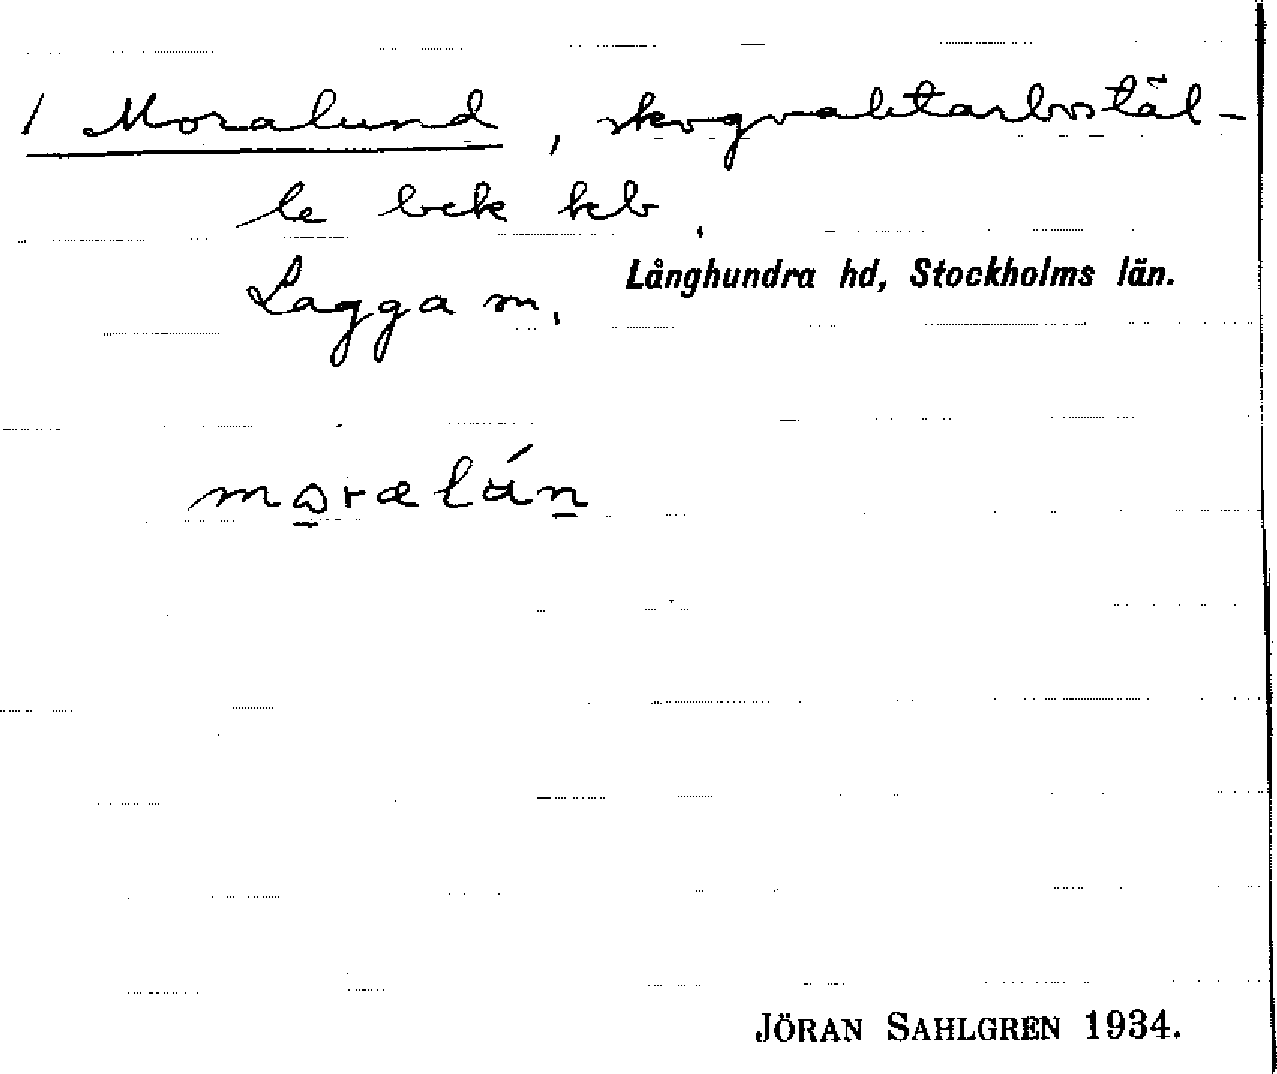 1 Moralund, skogvaktarbostäl-
le bek kb.
Långhundra hd, Stockholms län.
Lagga sn.
JÖRAN SAHLGREN 1934.